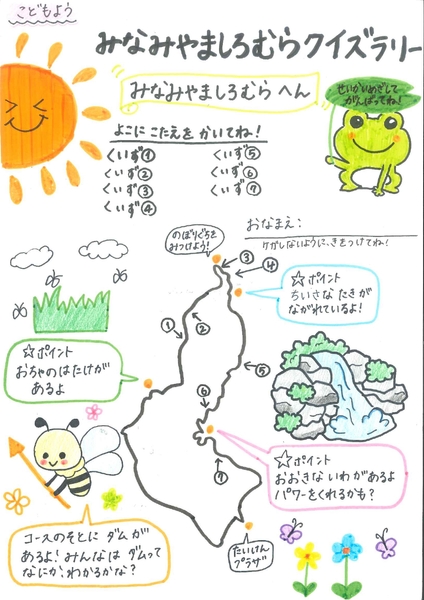 こどもよう
みなみやましろむらクイズラリー
みなみやましろむら へん
せいかいめざして
がんばってね!
よこに こたえを かいてね!
くいず①
くいず②
くいず③
くいず④
くいず⑤
くいず⑥
くいず⑦
おなまえ:
ケガしないように、きをつけてね!
のぼりぐちを
みつけよう!
③
④
☆ポイント
ちいさな たきが
ながれているよ!
①
②
☆ポイント
おちゃのはたけが
あるよ
⑤
⑥
⑦
☆ポイント
おおきな いわ があるよ
パワーをくれるかも?
コースのそとに ダムが
あるよ!みんなは ダムって
なにか、わかるかな?
たいけん
プラザ